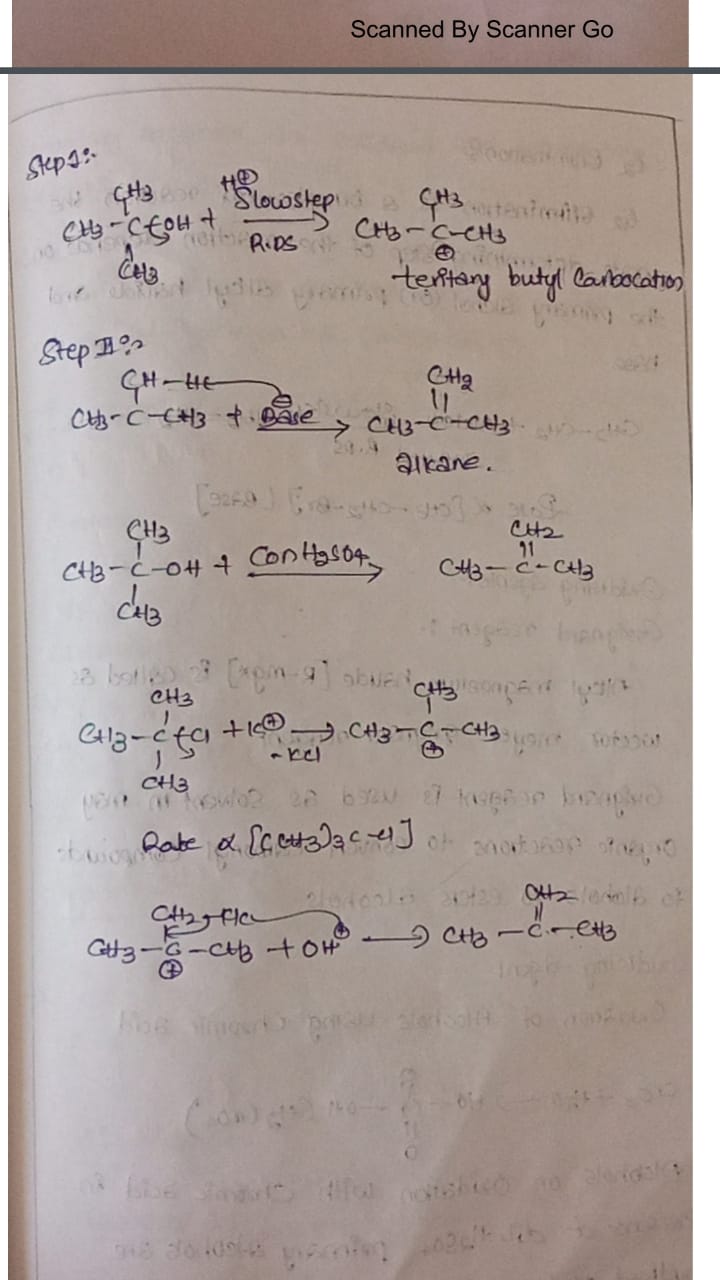 Scanned By Scanner Go
Step I :-
CH3 H⊕
CH3 - C - OH + Slow step → CH3 - C - CH3
CH3 R.DS ⊕
CH3
teritary butyl Carbocation
Step II :-
CH2
CH3 - C - CH3 + Base ⊖ → CH3 - C - CH3
||
alkane.
CH3 CH2
CH3 - C - OH + Con H2SO4 → CH3 - C - CH3
CH3 ||
CH3 CH3
CH3 - C - Cl + K⊕ → CH3 - C - CH3
CH3 - KCl ⊕
Rate α [(CH3)3 C - Cl]
CH2
CH3 - C - CH3 + OH → CH3 - C - CH3
⊕ ||